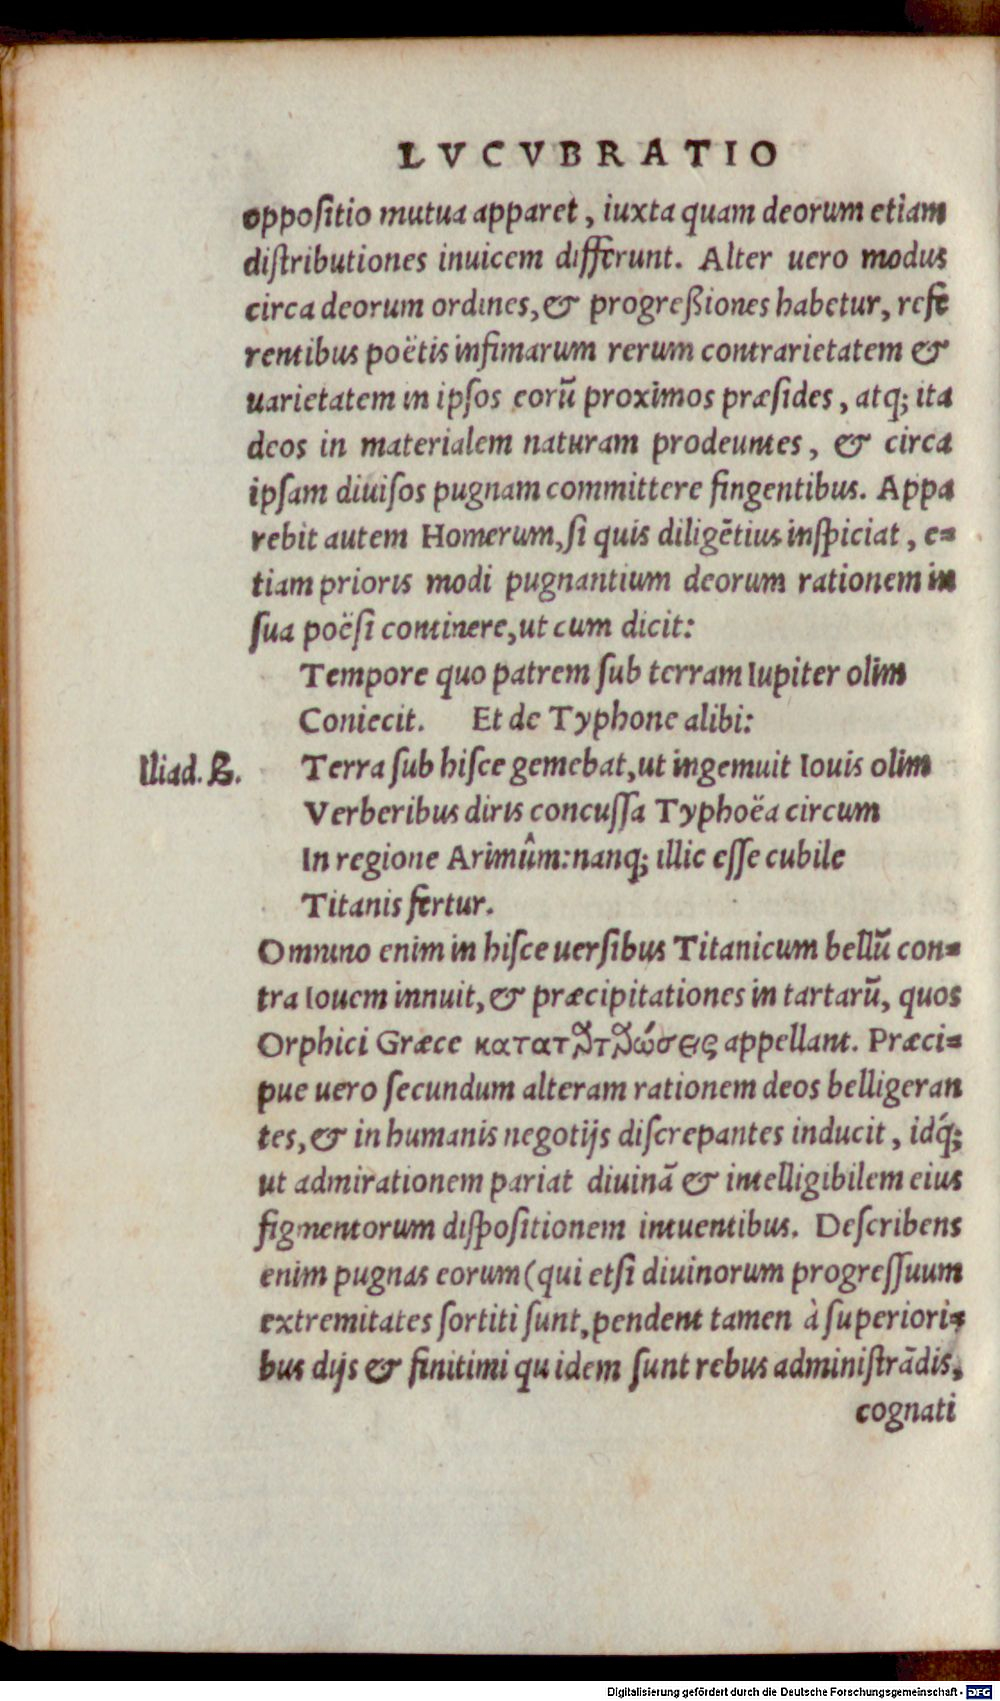 LVCVBRATIO
oppoſitio mutua apparet, iuxta quam deorum etiam
diſtributiones inuicem differunt. Alter uero modus
circa deorum ordines, & progreßiones habetur, refe
rentibus poëtis infimarum rerum contrarietatem &
uarietatem in ipſos eorũ proximos præſides, atq; ita
deos in materialem naturam prodeuntes, & circa
ipſam diuiſos pugnam committere fingentibus. Appa
rebit autem Homerum, ſi quis diligẽtius inſpiciat, e-
tiam prioris modi pugnantium deorum rationem in
ſua poëſi continere, ut cum dicit:
Tempore quo patrem ſub terram Iupiter olim
Coniecit. Et de Typhone alibi:
Iliad. B.
Terra ſub hiſce gemebat, ut ingemuit Iouis olim
Verberibus diris concuſſa Typhoëa circum
In regione Arimûm: nanq; illic eſſe cubile
Titanis fertur.
Omnino enim in hiſce uerſibus Titanicum bellũ con-
tra Iouem innuit, & præcipitationes in tartarũ, quos
Orphici Græce καταταρταρώσεις appellant. Præci-
pue uero ſecundum alteram rationem deos belligeran
tes, & in humanis negotijs diſcrepantes inducit, idq́;
ut admirationem pariat diuinã & intelligibilem eius
figmentorum diſpoſitionem intuentibus. Deſcribens
enim pugnas eorum (qui etſi diuinorum progreſſuum
extremitates ſortiti ſunt, pendent tamen à ſuperiori-
bus dijs & finitimi quidem ſunt rebus adminiſtrãdis,
cognati
Digitalisierung gefördert durch die Deutsche Forschungsgemeinschaft - DFG